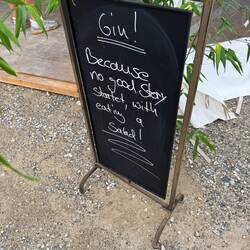 Gin!
Because
no good Story
startet, with
eating a
Salad!